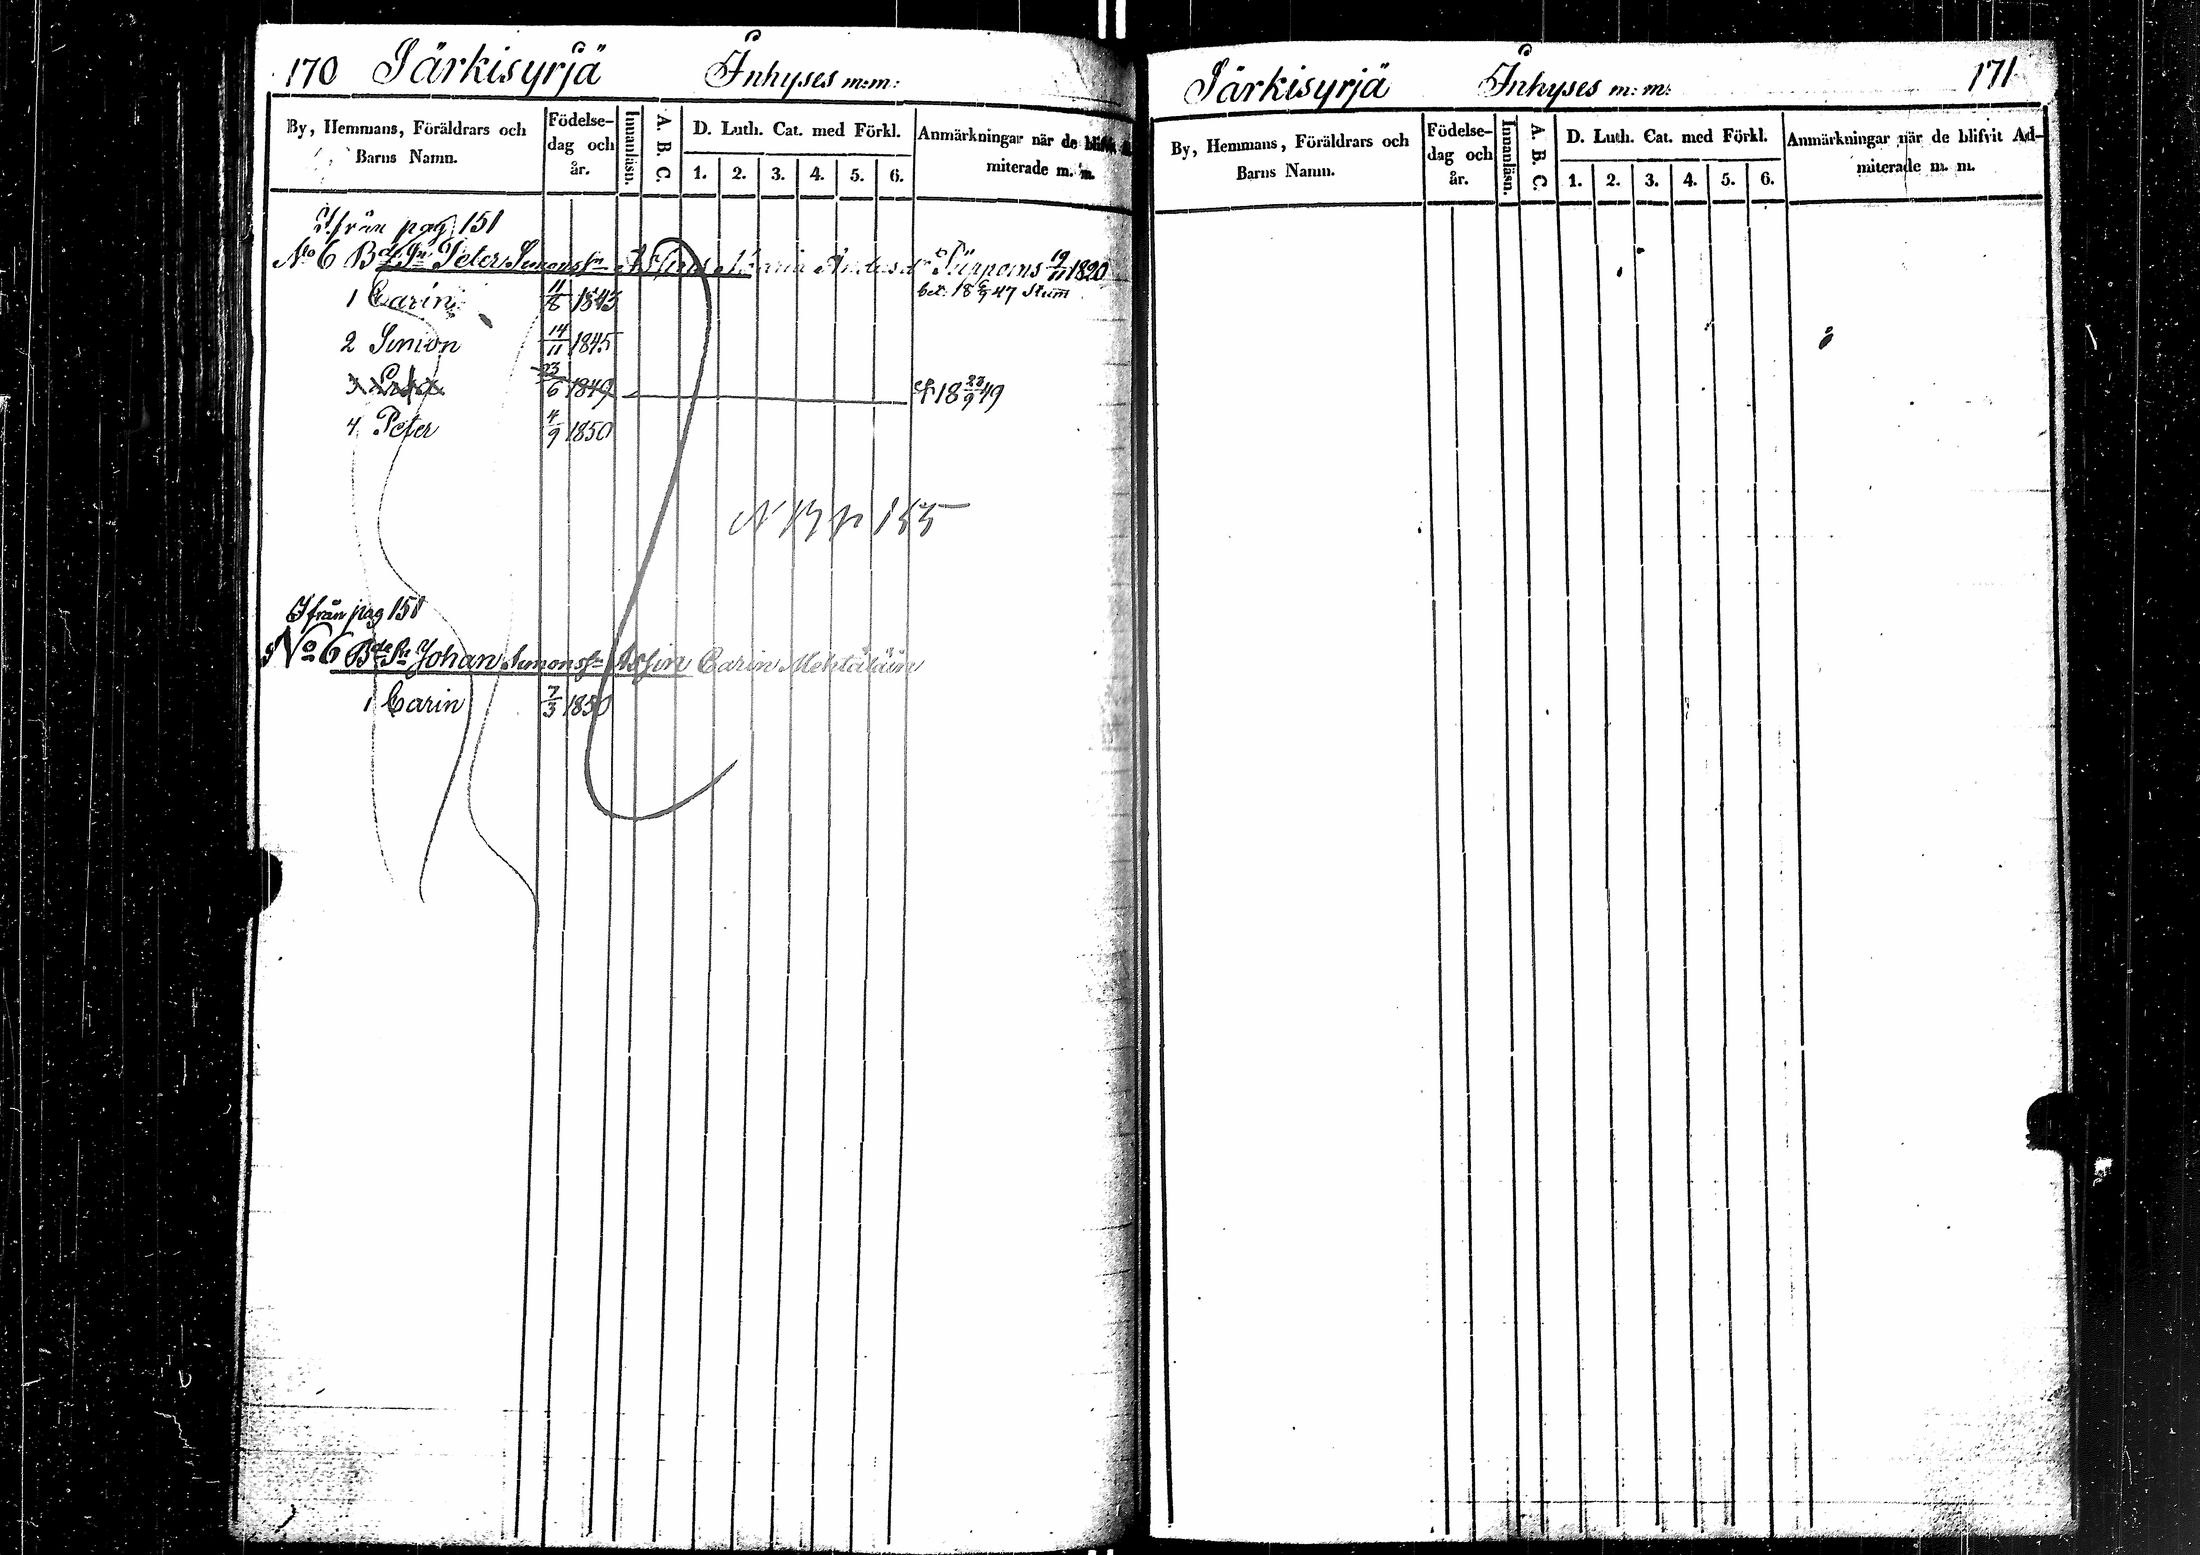 170 Särkisyrjä Inhyses m:m:
By, Hemmans, Föräldrars och Barns Namn.
Födelse-dag och år.
Innanläsn.
A. B. C.
D. Luth. Cat. med Förkl.
1. 2. 3. 4. 5. 6.
Anmärkningar när de blifvit miterade m. m.
Ifrån pag 151
No 6 Bd Sn Peter Simonssn Maria Andersdr 19/11 1820
1 Carin 11/8 1843 bet. 18 47 Stum
2 Simon 14/11 1845
3 23/6 1849 18 23/9 49
4 Peter 4/9 1850
N 17 p 155
Ifrån pag 151
No 6 Bde Sn Johan Simonssn Carin Mehtäläin
1 Carin 7/3 1850
Särkisyrjä Inhyses m: m: 171
By, Hemmans, Föräldrars och Barns Namn.
Födelse-dag och år.
Innanläsn.
A. B. C.
D. Luth. Cat. med Förkl.
1. 2. 3. 4. 5. 6.
Anmärkningar när de blifvit Ad-miterade m. m.